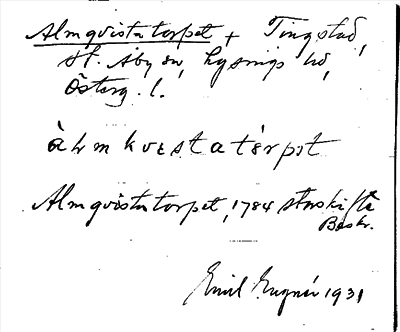 Almqvistatorpet + Tingstad,
St. Åby sn, Lysings hd,
Österg. l.
àlmkvɛstatèrpɛt
Almqvistatorpet, 1784 storskifte
Beskr.
Emil 1931